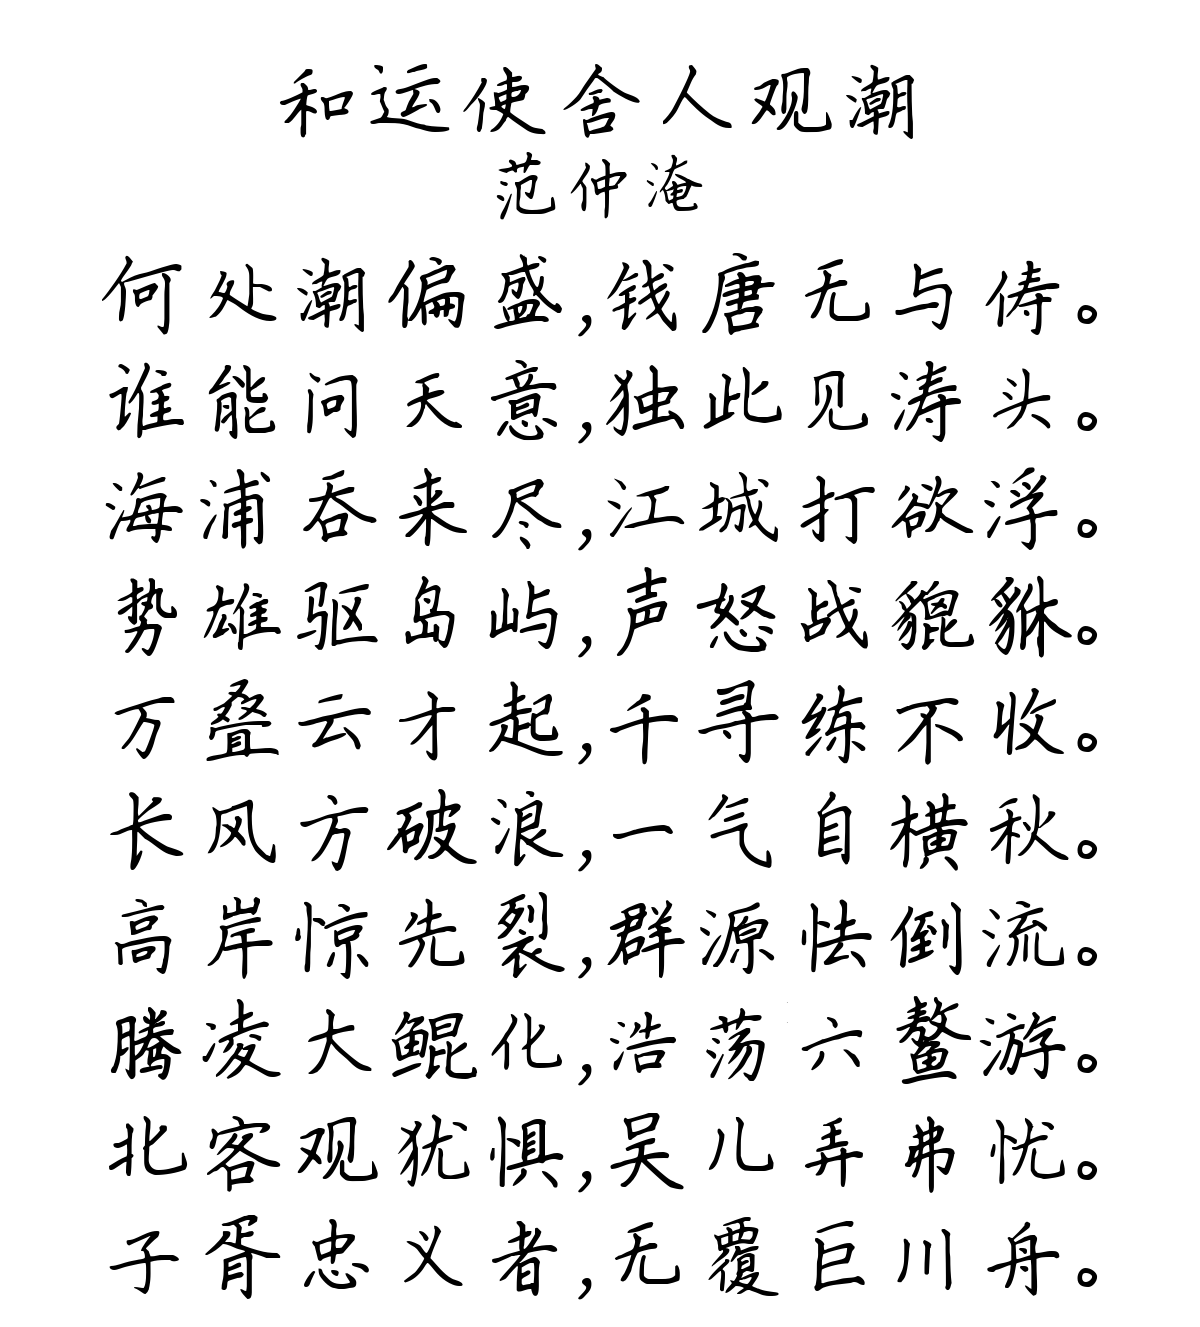 和运使舍人观潮
范仲淹
何处潮偏盛,钱唐无与俦。
谁能问天意,独此见涛头。
海浦吞来尽,江城打欲浮。
势雄驱岛屿,声怒战貔貅。
万叠云才起,千寻练不收。
长风方破浪,一气自横秋。
高岸惊先裂,群源怯倒流。
腾凌大鲲化,浩荡六鳌游。
北客观犹惧,吴儿弄弗忧。
子胥忠义者,无覆巨川舟。